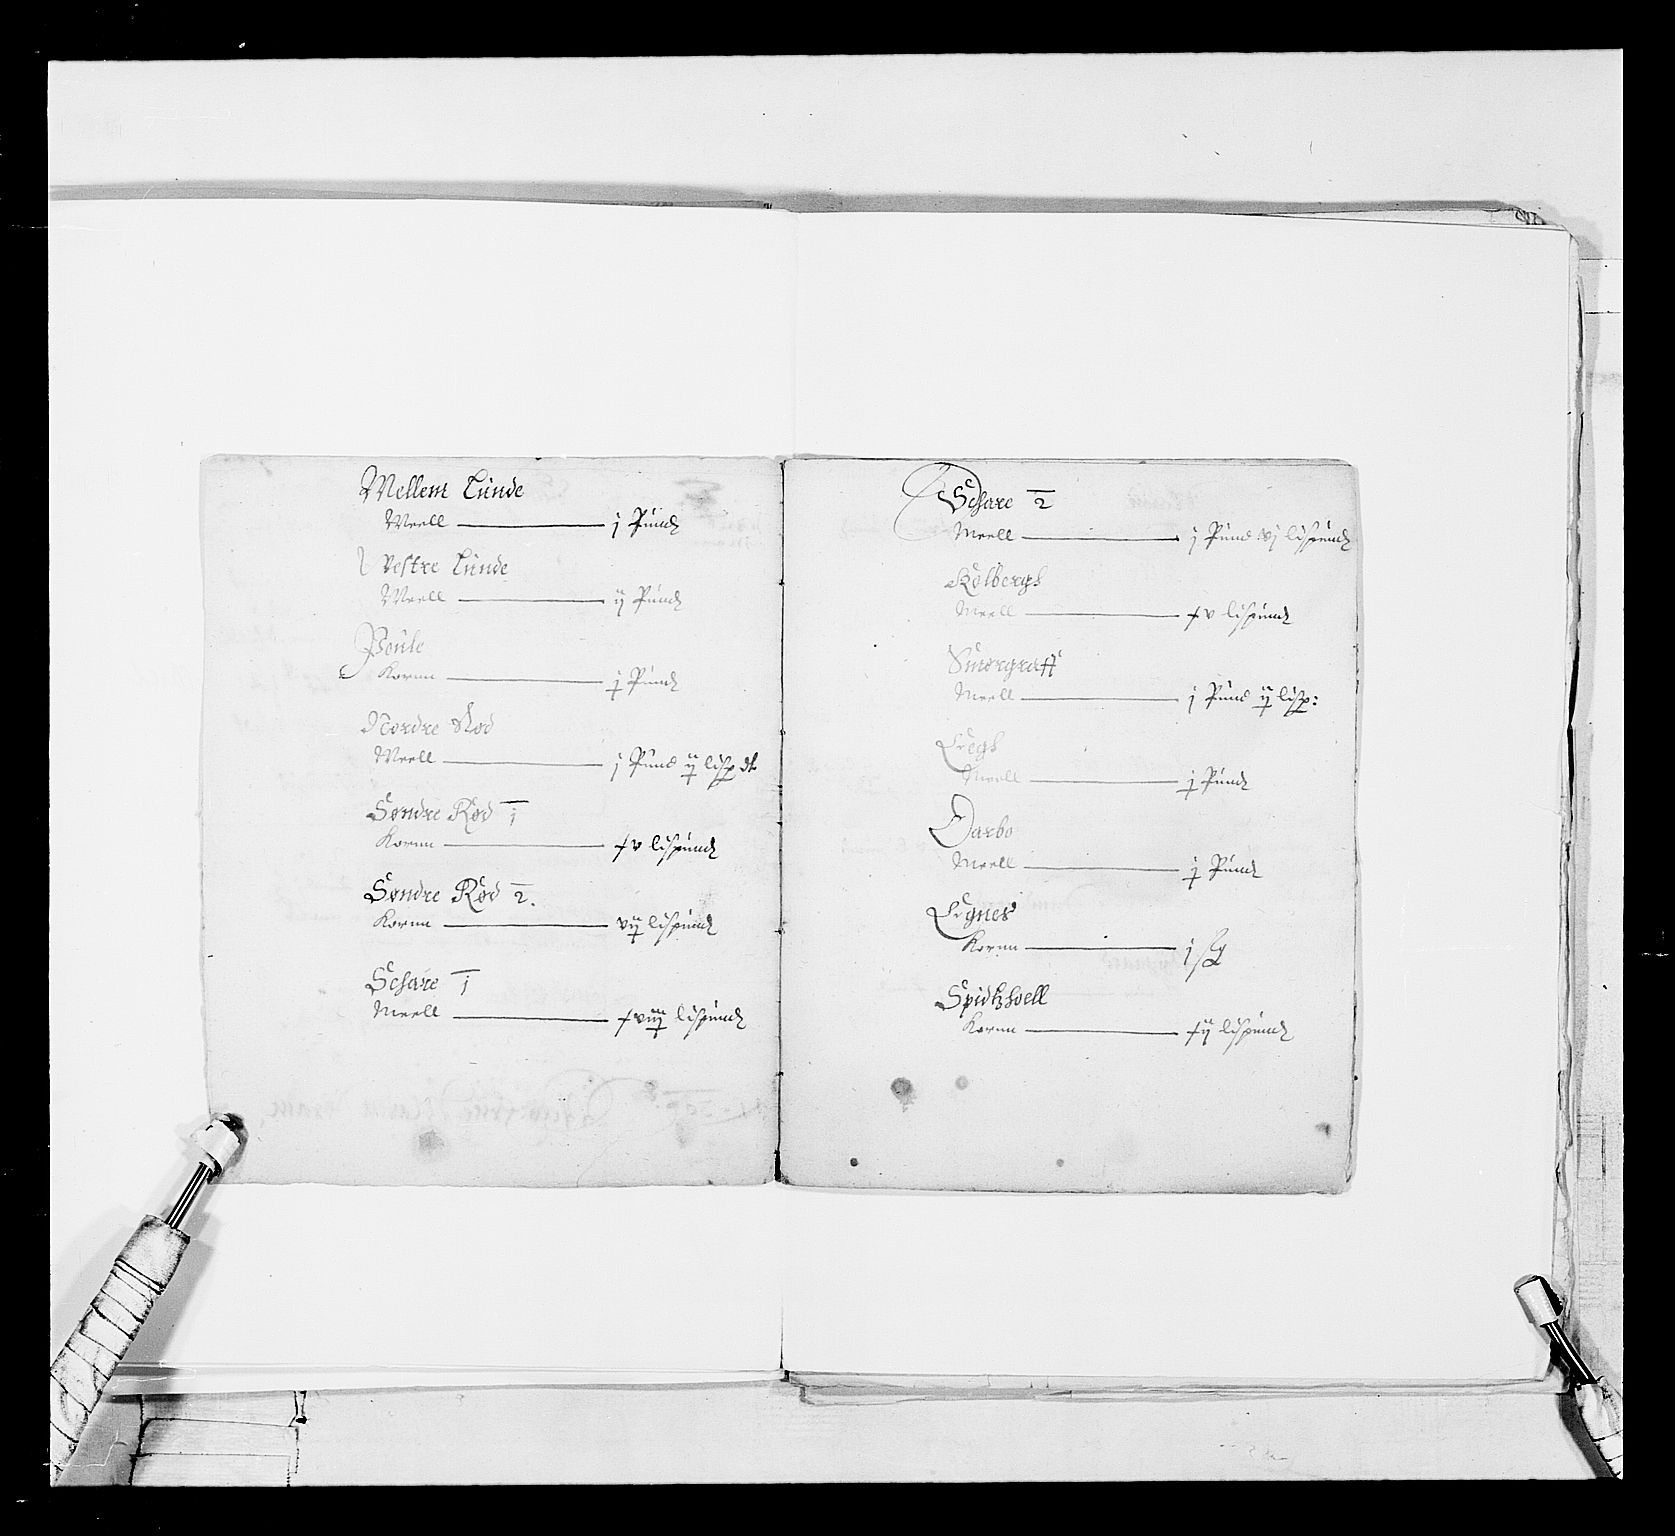 Mellem Lunde
Meell j Pund
Vestre Lunde
Meell ij Pund
Poule
Kornn j Pund
Nordre Rød
Meell j Pund ij lisp
Søndre Rød 1
Kornn v lispund
Søndre Rød 2.
Kornn vij lispund
Schare 1
Meell viiij lispund
Schare 2
Meell j Pund vj lispund
Kolbergs
Meell v lispund
Smørgraff
Meell j Pund iij lisp:
Meell j Pund
Darbo
Meell j Pund
Kornn j
Spidtzhoell
Kornn ij lispund